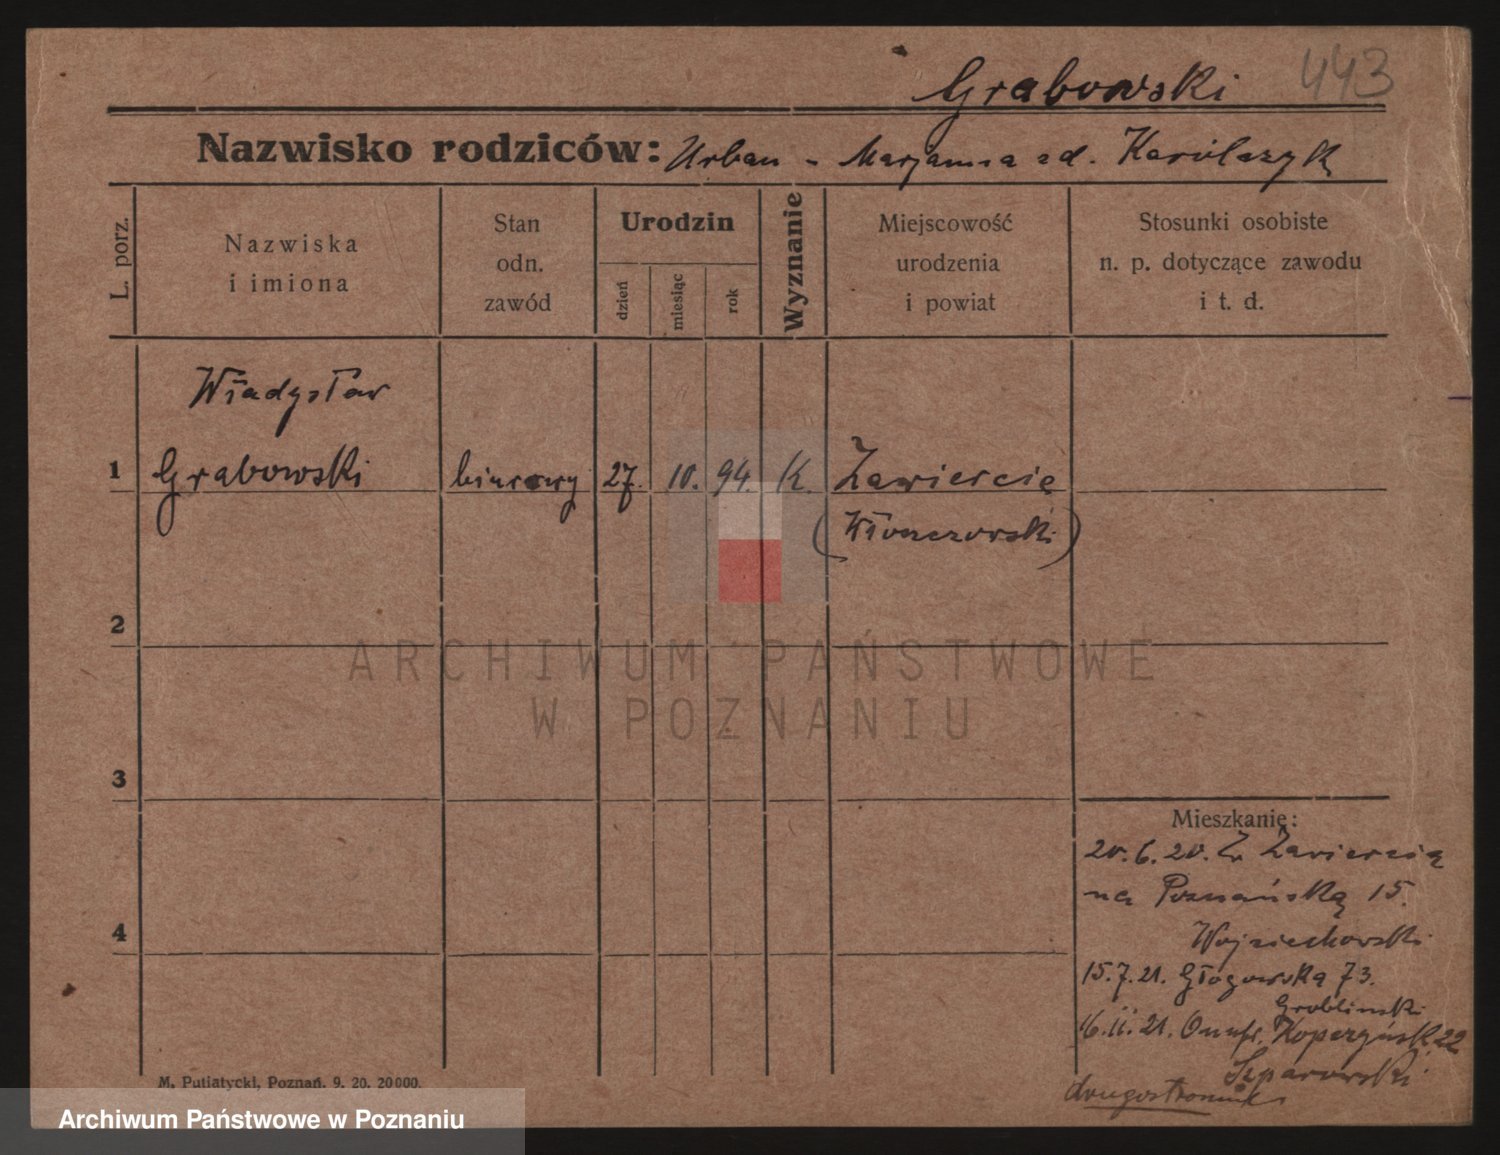 Grabowski 443
Nazwisko rodziców: Urban - Marjanna
L. porz.
Nazwiska
i imiona
Stan
odn.
zawód
Urodzin
dzień
miesiąc
rok
Wyznanie
Miejscowość
urodzenia
i powiat
Stosunki osobiste
n. p. dotyczące zawodu
i t. d.
Władysław
1 Grabowski biurowy 27. 10. 94. K. Zawiercie
2
ARCHIWUM PAŃSTWOWE
W POZNANIU
3
Mieszkanie:
20.6.20. Z Zawiercia
na Poznańską 15.
4
Wojciechowski
15.7.21. Głogowska 73.
Groblinski
16.11.21. 22
M. Putiatycki, Poznań. 9. 20. 20000.
Archiwum Państwowe w Poznaniu